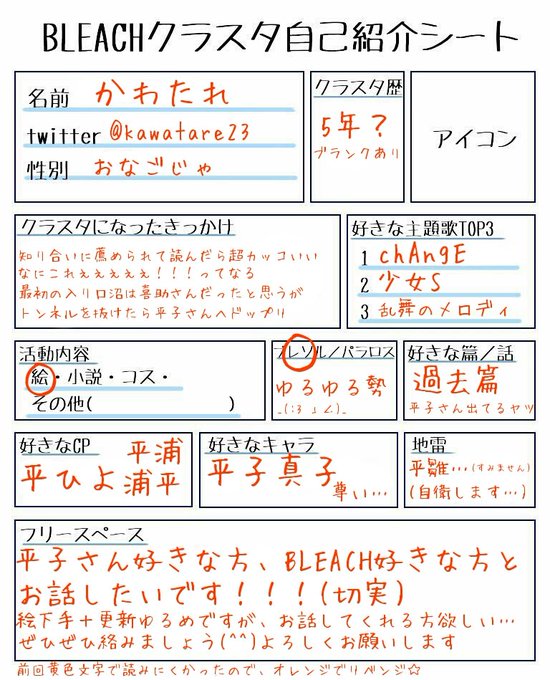 BLEACHクラスタ自己紹介シート
名前 かわたれ
twitter @kawatare23
性別 おなごじゃ
クラスタ歴
5年？
ブランクあり
アイコン
クラスタになったきっかけ
知り合いに薦められて読んだら超カッコいい
なにこれぇぇぇぇぇ！！！ってなる
最初の入り口沼は喜助さんだったと思うが
トンネルを抜けたら平子さんへドップリ
好きな主題歌TOP3
1 chAngE
2 少女S
3 乱舞のメロディ
活動内容
絵・小説・コス・
その他( )
ブレソル／パラロス
ゆるゆる勢
_(:3 」∠)_
好きな篇／話
過去篇
平子さん出てるヤツ
好きなCP
平ひよ 平浦
浦平
好きなキャラ
平子真子
尊い…
地雷
平雛…(すみません)
(自衛します…)
フリースペース
平子さん好きな方、BLEACH好きな方と
お話したいです！！！(切実)
絵下手＋更新ゆるめですが、お話してくれる方欲しい…
ぜひぜひ絡みましょう(^^)よろしくお願いします
前回黄色文字で読みにくかったので、オレンジでリベンジ☆